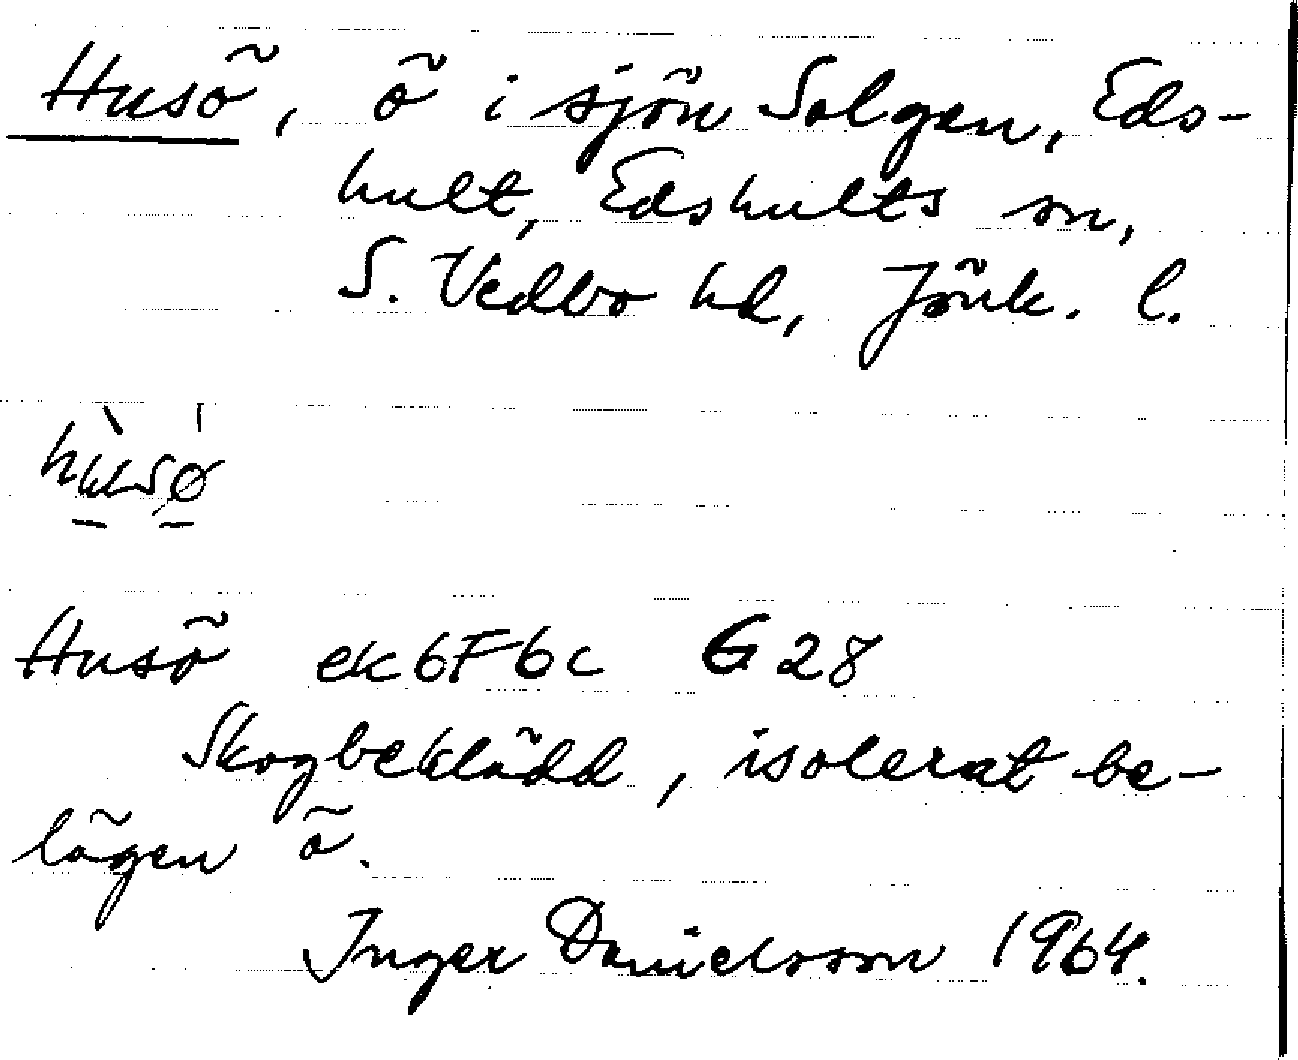 Husö, ö i sjön Solgen, Eds-
hult, Edshults sn,
S. Vedbo hd, Jönk. l.
hùsø
Husö ek6F6c G28
Skogbeklädd, isolerat be-
lägen ö.
Inger Danielsson 1964.